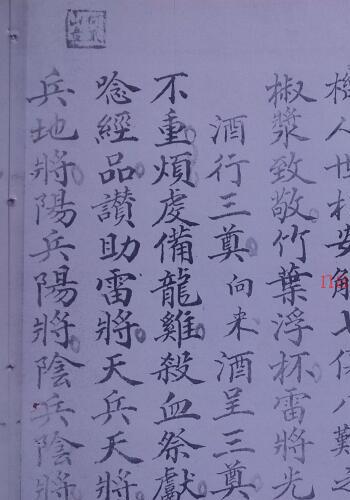 機人世杉安解七伍八難之
椒漿致敬竹葉浮杯雷將光
酒行三奠向来酒呈三奠
不重煩虔備龍雞殺血祭獻
唸經品讃助雷將天兵天將
兵地將陽兵陽將陰兵陰將